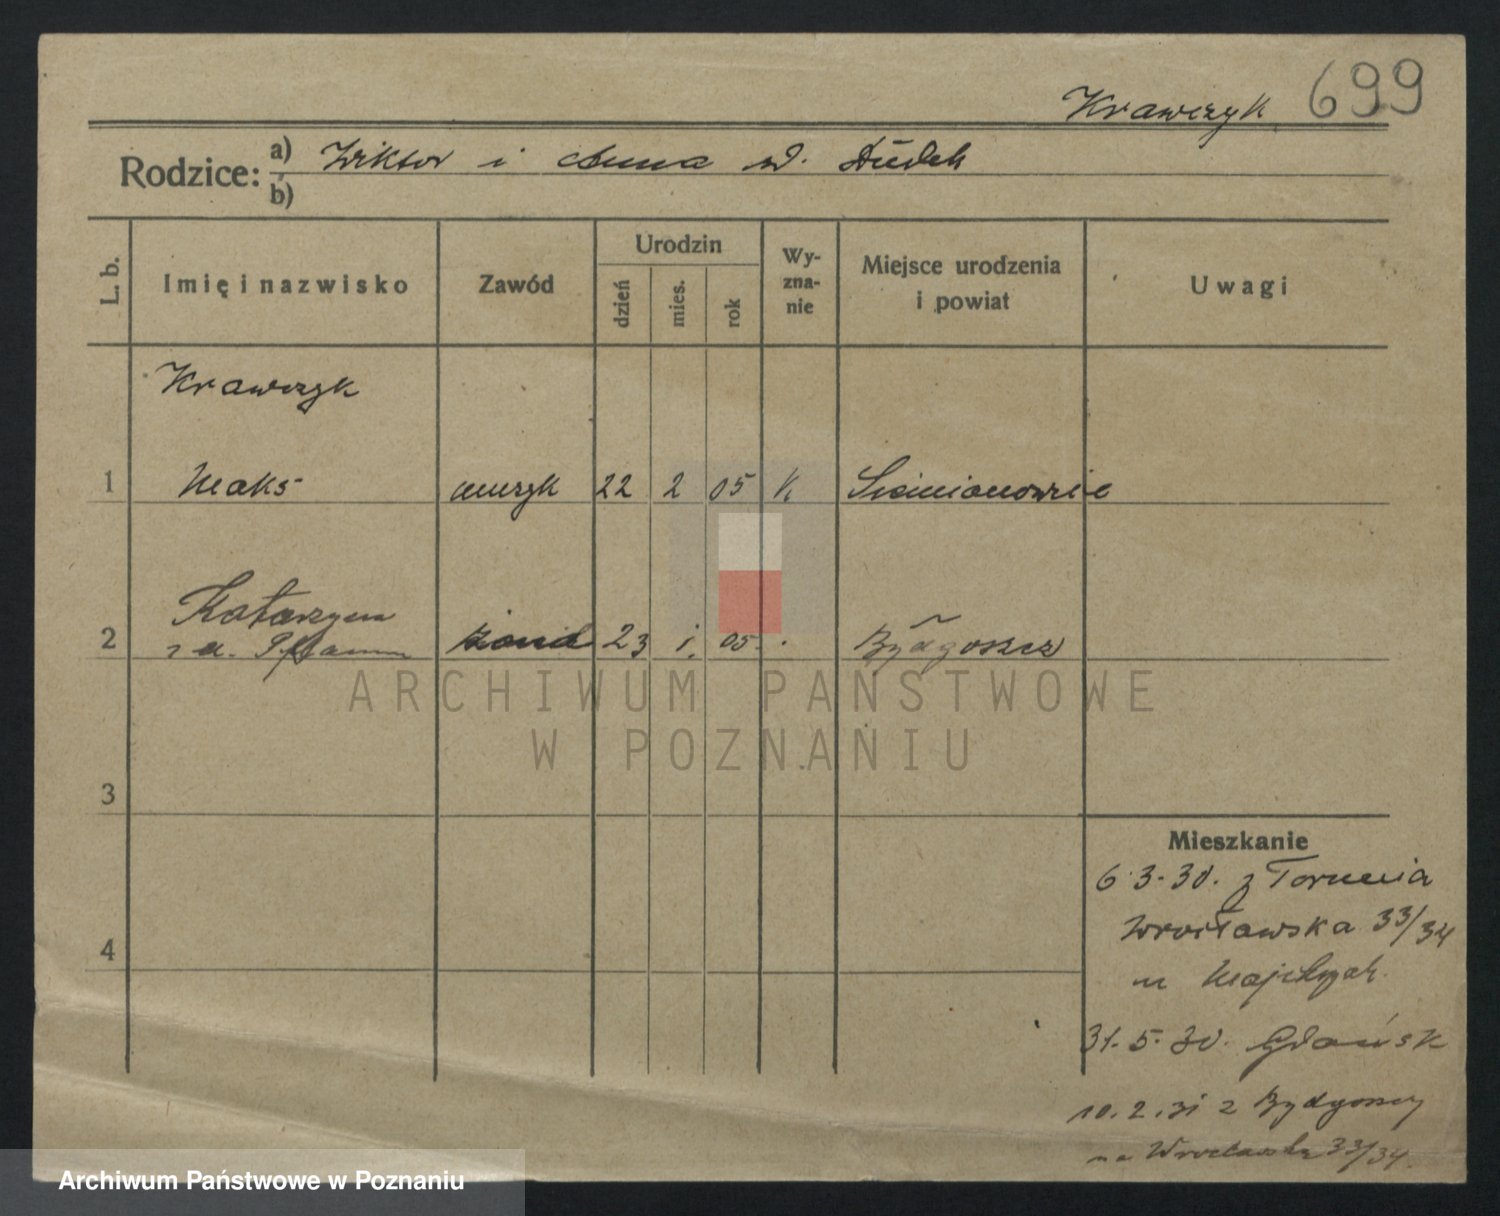 Krawczyk 699
Rodzice: a) Wiktor i Anna d. Dudek
b)
L. b. Imię i nazwisko Zawód Urodzin dzień mies. rok Wy-zna-nie Miejsce urodzenia i powiat Uwagi
Krawczyk
1 Maks muzyk 22 2 05 k Siemianowice
Katarzyna
2 z d. Pflaum 23 1. 05. Bydgoszcz
ARCHIWUM PAŃSTWOWE
W POZNANIU
3
Mieszkanie
6.3.30. z Torunia
Wrocławska 33/34
4
u
31.5.30. Gdańsk
10.2.31 z Bydgoszczy
na Wrocławska 33/34.
Archiwum Państwowe w Poznaniu